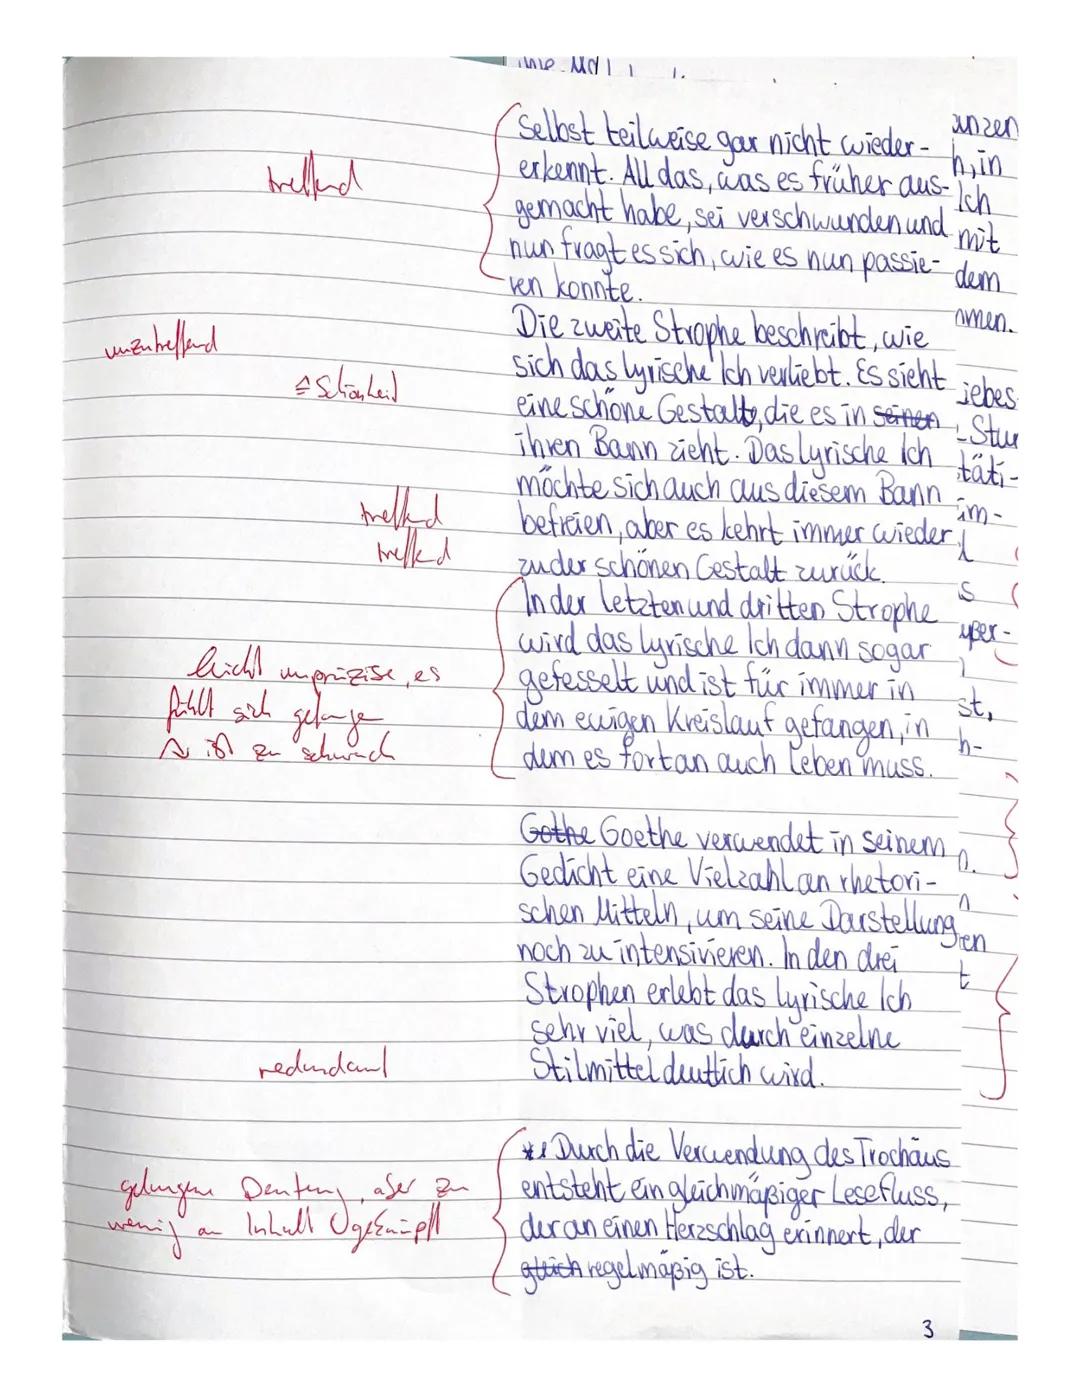 Selbst teilweise gar nicht wieder-
treffend
erkennt. All das, was es früher aus-
gemacht habe, sei verschwunden und
nun fragt es sich, wie es nun passie-
ren konnte.
Die zweite Strophe beschreibt, wie
unzutreffend
sich das lyrische Ich verliebt. Es sieht
≙ Schönheit
eine schöne Gestalt, die es in seinen
ihren Bann zieht. Das lyrische Ich
möchte sich auch aus diesem Bann
treffend
befreien, aber es kehrt immer wieder
treffend
zu der schönen Gestalt zurück.
In der letzten und dritten Strophe
wird das lyrische Ich dann sogar
leicht unpräzise, es
gefesselt und ist für immer in
fühlt sich gefangen
dem ewigen Kreislauf gefangen, in
ist zu schwach
dem es fortan auch leben muss.
Gothe Goethe verwendet in seinem
Gedicht eine Vielzahl an rhetori-
schen Mitteln, um seine Darstellung
noch zu intensivieren. In den drei
Strophen erlebt das lyrische Ich
sehr viel, was durch einzelne
redundant
Stilmittel deutlich wird.
*1 Durch die Verwendung des Trochäus
gelungene Deutung, aber zu
entsteht ein gleichmäßiger Lesefluss,
wenig an Inhalt geknüpft
der an einen Herzschlag erinnert, der
gleich regelmäßig ist.
anzen
h, in
Ich
mit
dem
men.
iebes
Stur
täti-
im-
l
s
per-
st,
h-
n.
n
en
t
3